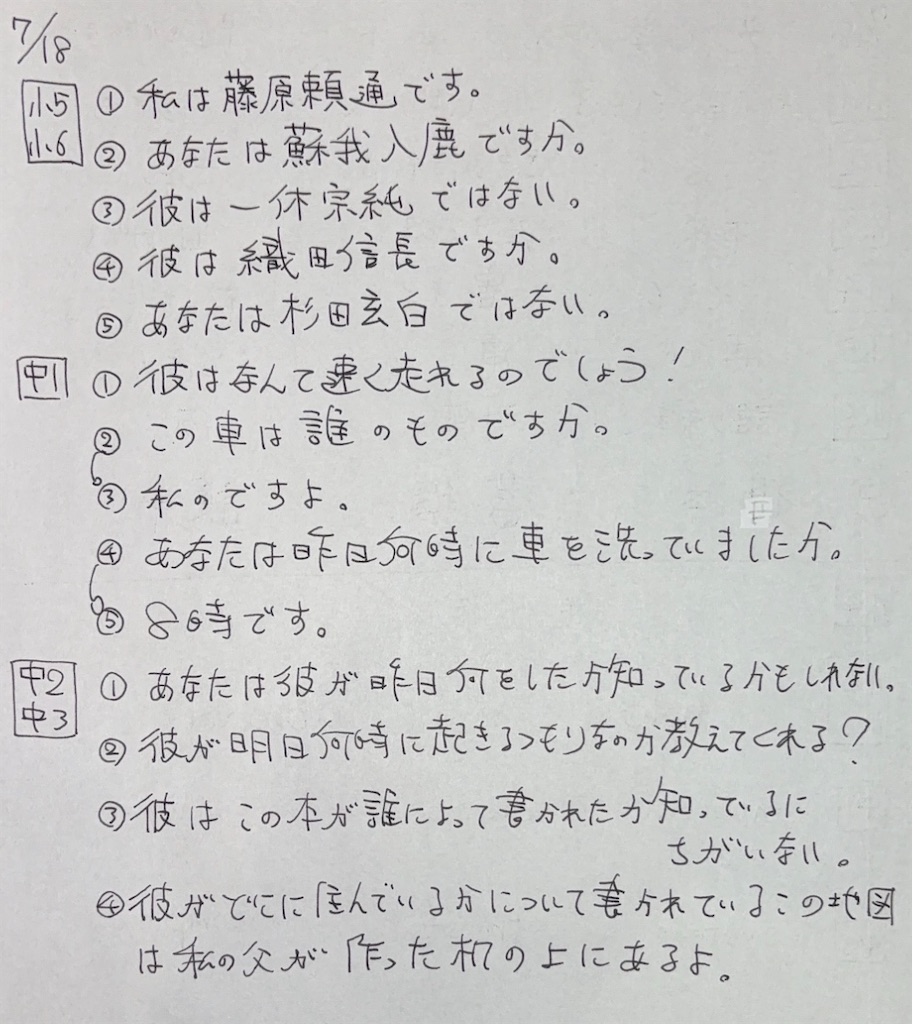 7/18
小5 ① 私は藤原頼通です。
小6 ② あなたは蘇我入鹿ですか。
③ 彼は一休宗純ではない。
④ 彼は織田信長ですか。
⑤ あなたは杉田玄白ではない。
中1 ① 彼はなんて速く走れるのでしょう!
② この車は誰のものですか。
③ 私のですよ。
④ あなたは昨日何時に車を洗っていましたか。
⑤ 8時です。
中2 ① あなたは彼が昨日何をしたか知っているかもしれない。
中3 ② 彼が明日何時に起きるつもりなのか教えてくれる?
③ 彼はこの本が誰によって書かれたか知っているに
ちがいない。
④ 彼がどこに住んでいるかについて書かれているこの地図
は私の父が作った机の上にあるよ。